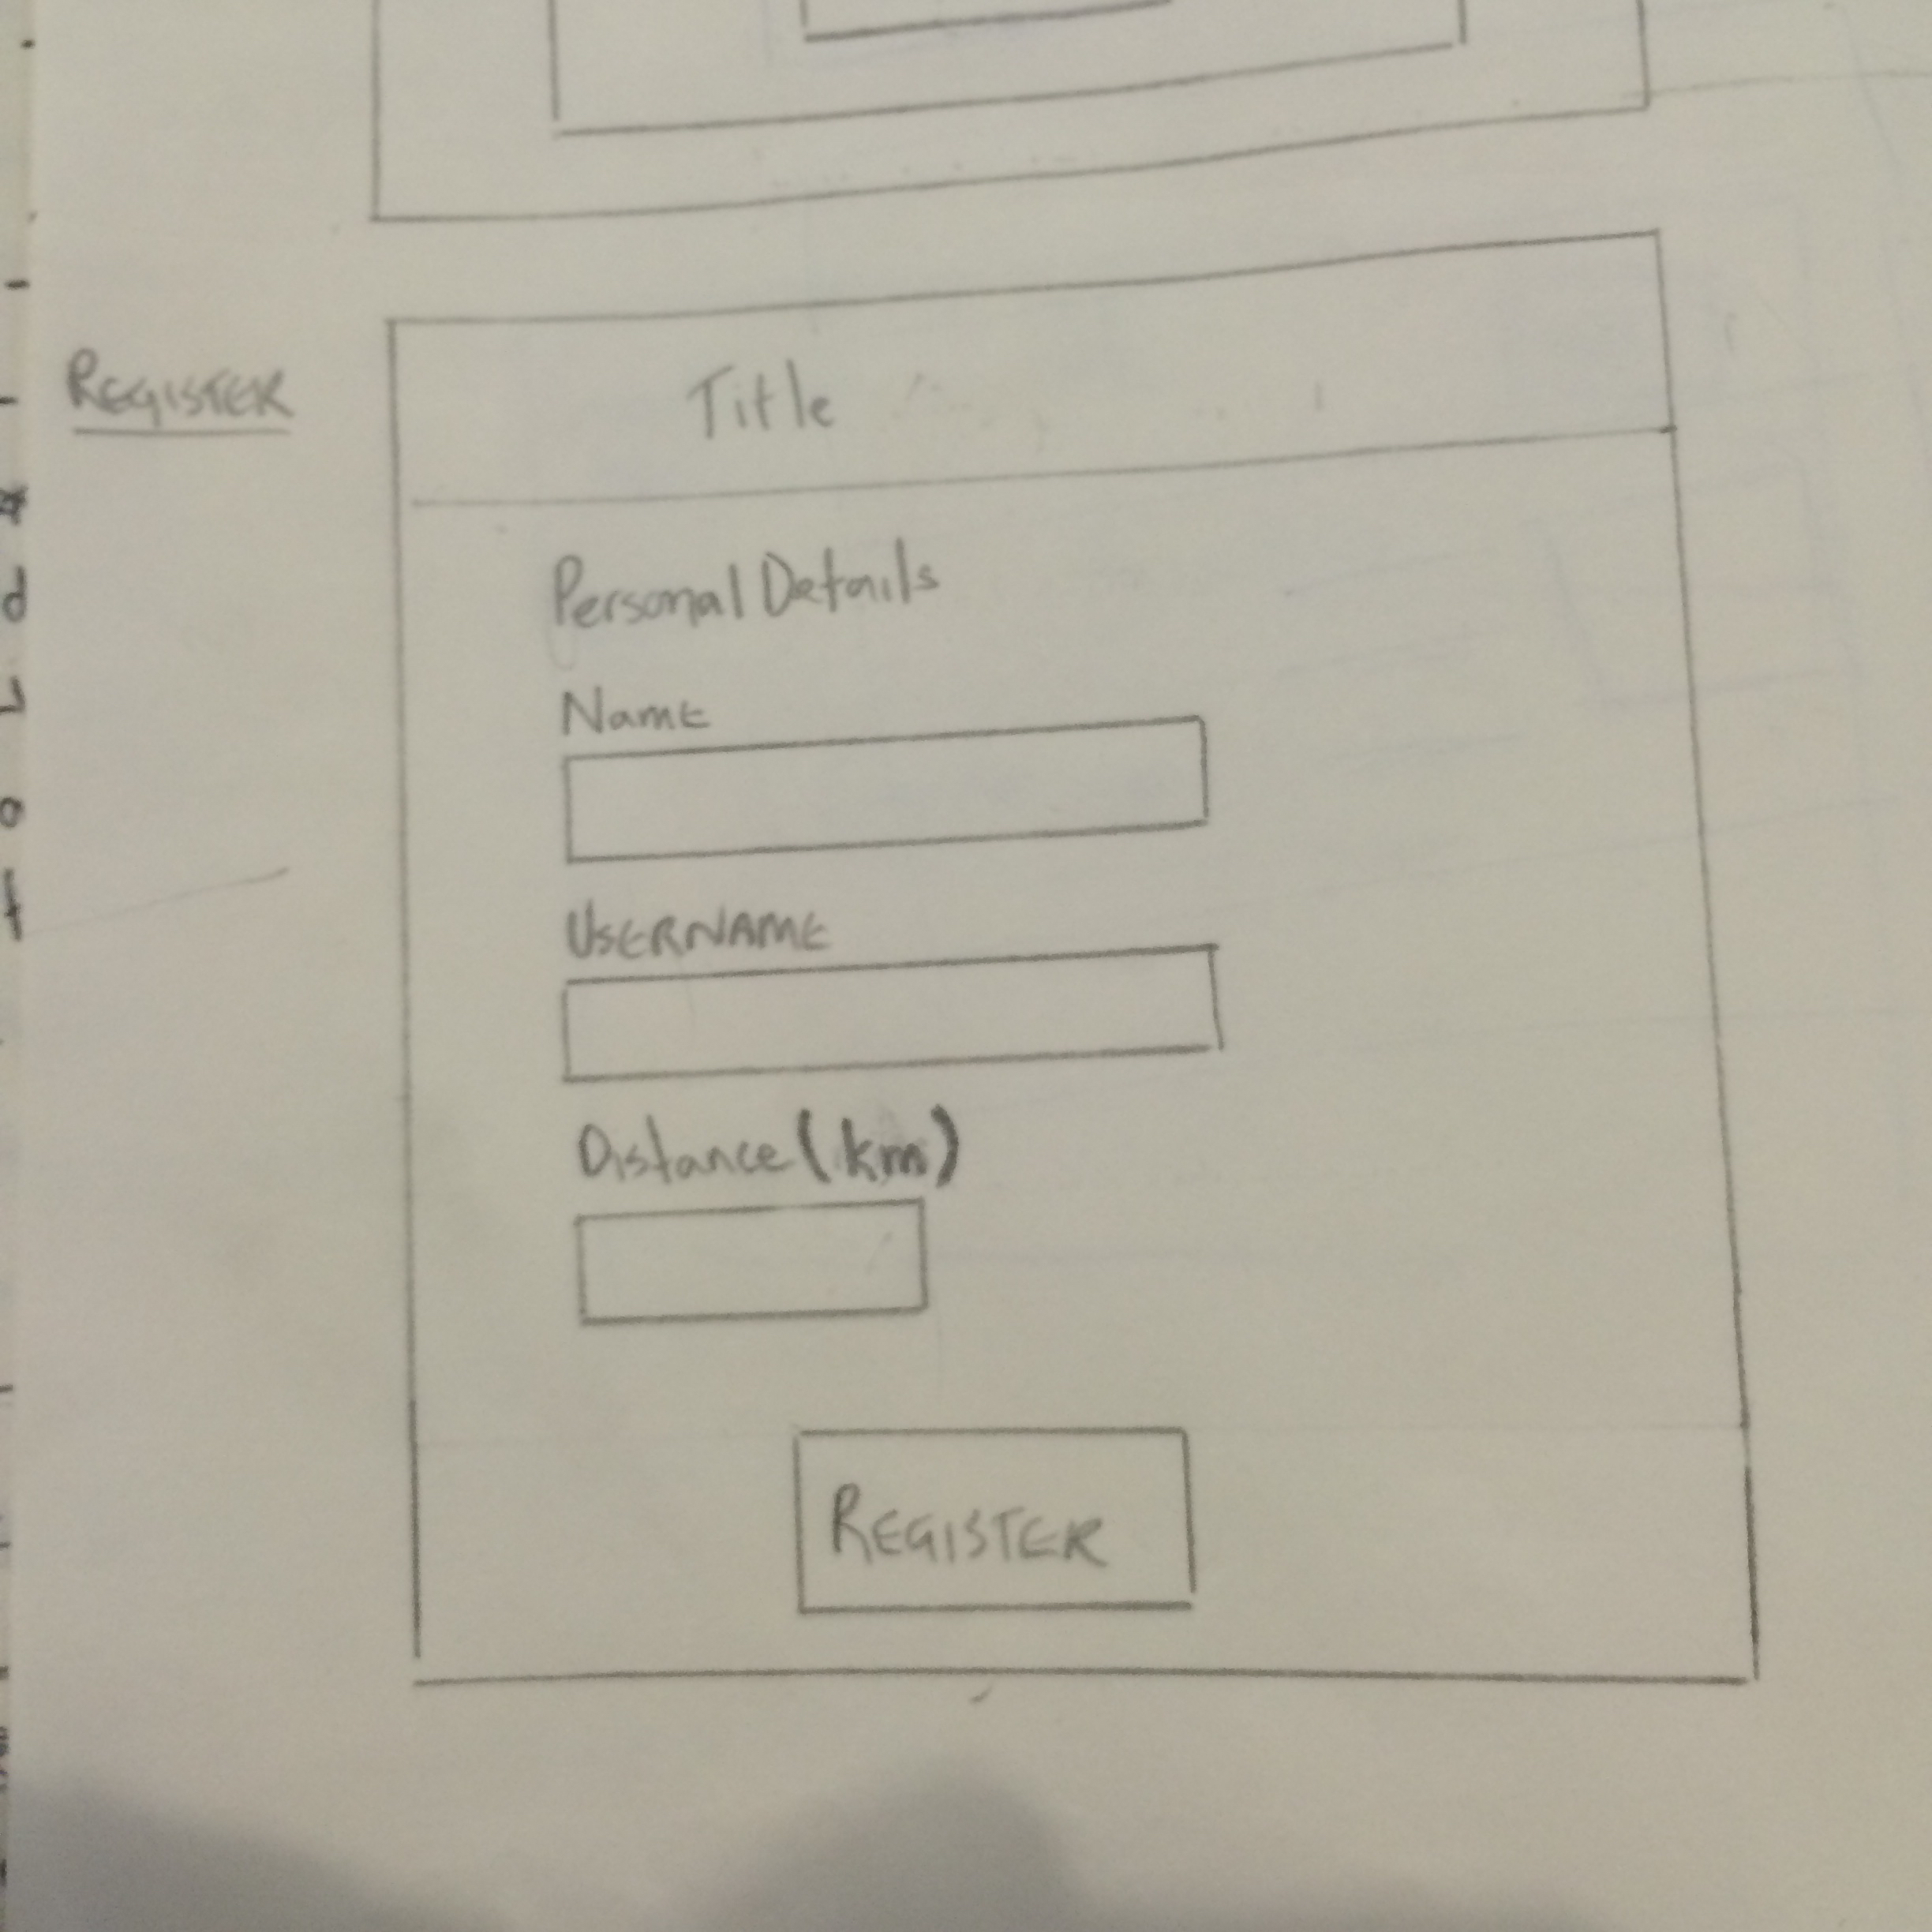 REGISTER
Title
Personal Details
Name
USERNAME
Distance (km)
REGISTER